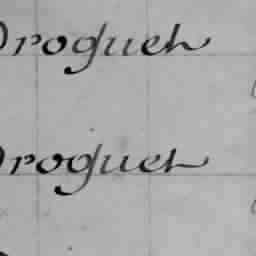 Droguet
Droguet